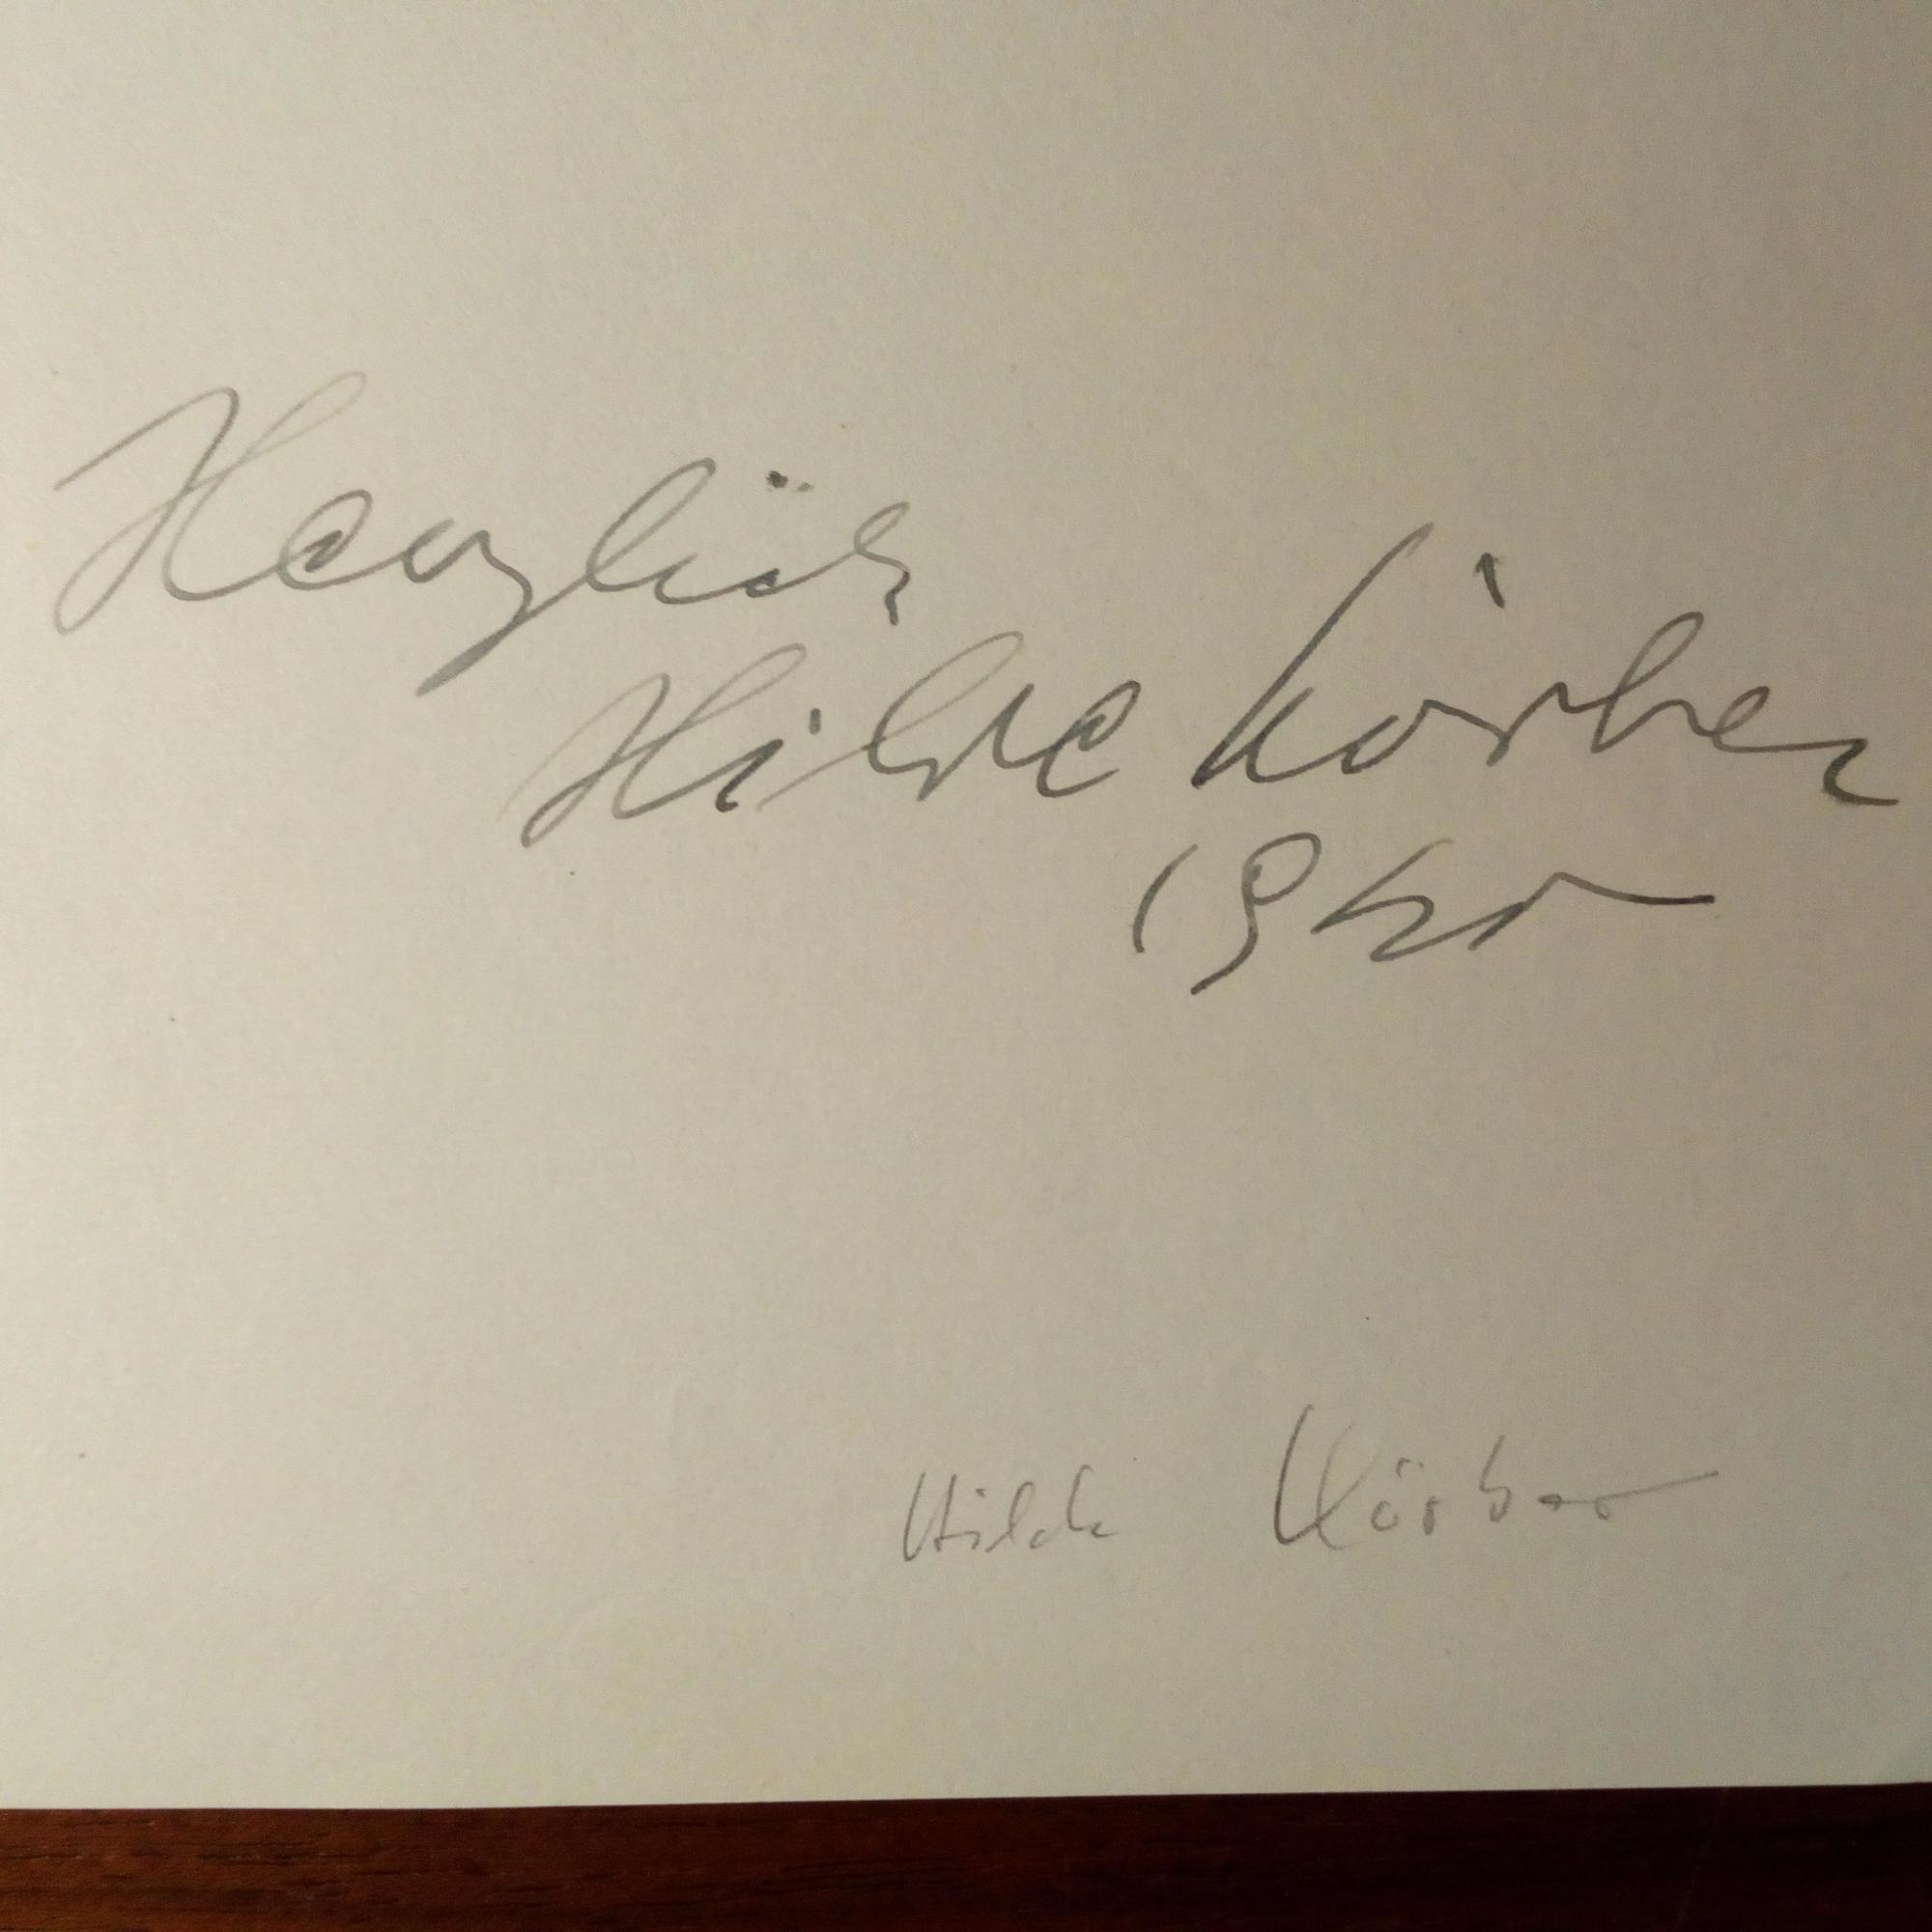 Herzlich
Hilde Körber
Hilde Körber